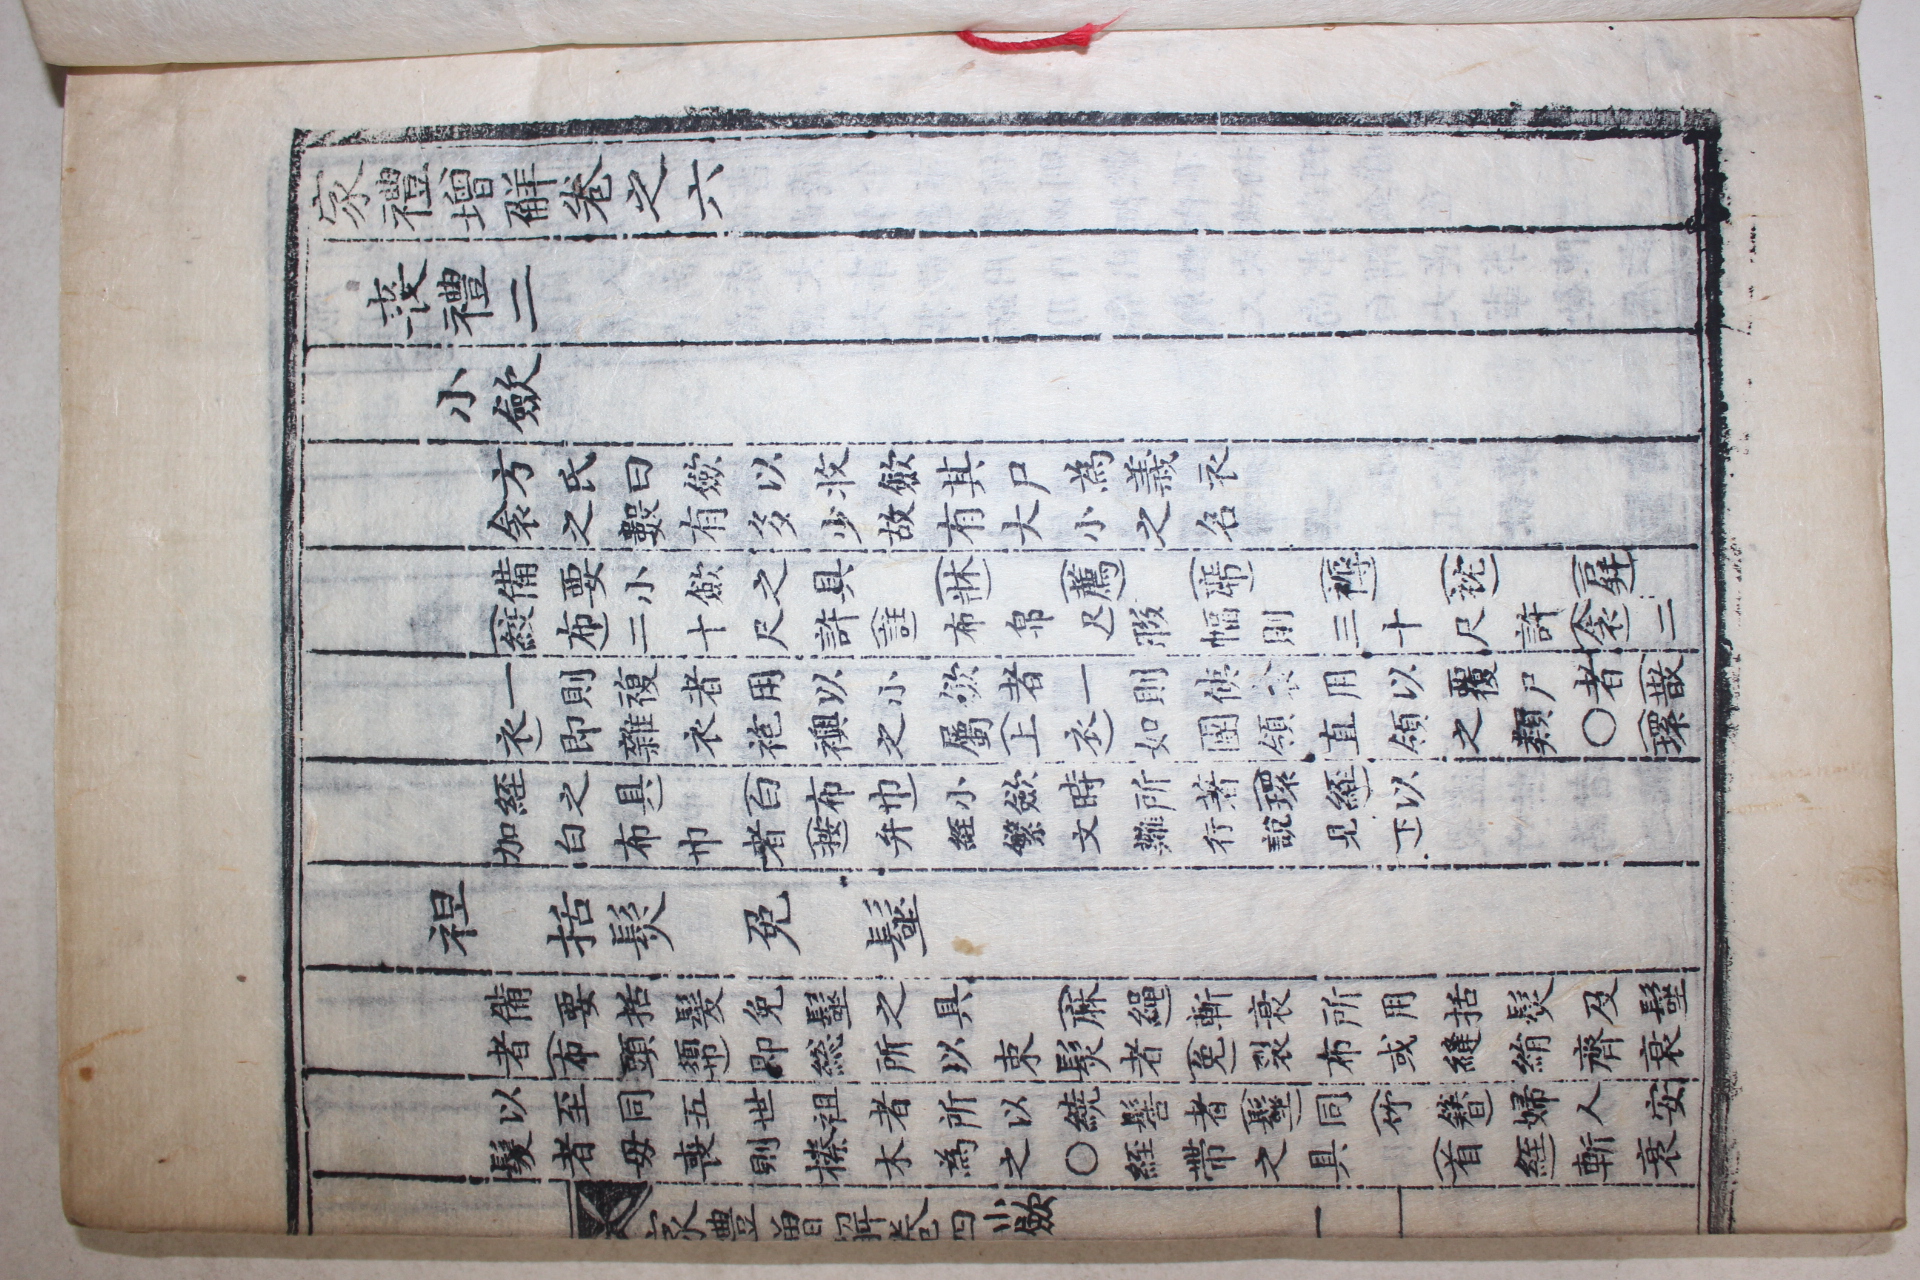 家禮增解卷之六
喪禮二
小斂
方氏曰斂以收斂其尸為義衣
衾之數有多少故有大小之名
備要小斂之具(牀)(薦)(席)(褥)(枕)(屛)
(絞布)二十尺許(註)布帛 幅則三十尺許(衾)二
一則複者用以小斂者一則俠衾用以覆尸者(散
衣)即雜衣袍襖之屬(上衣)如團領直領之類○(環
絰之具)(白布巾)小斂時所著(環絰)以
加白布巾者(按)弁絰繁文難行說見下
袒 括髮 免 髽
備要括髮免髽之具(麻繩)斬衰所用括髮及髽
者(布頭𢄼)即総所以束髮者(免)裂布或縫絹齊衰
以至同五世祖者所以繞髻者(髽)同(竹簪)婦人安
髮者母喪則榛木為之○絰帶之具(首絰)斬衰
家禮增解卷四小斂 一